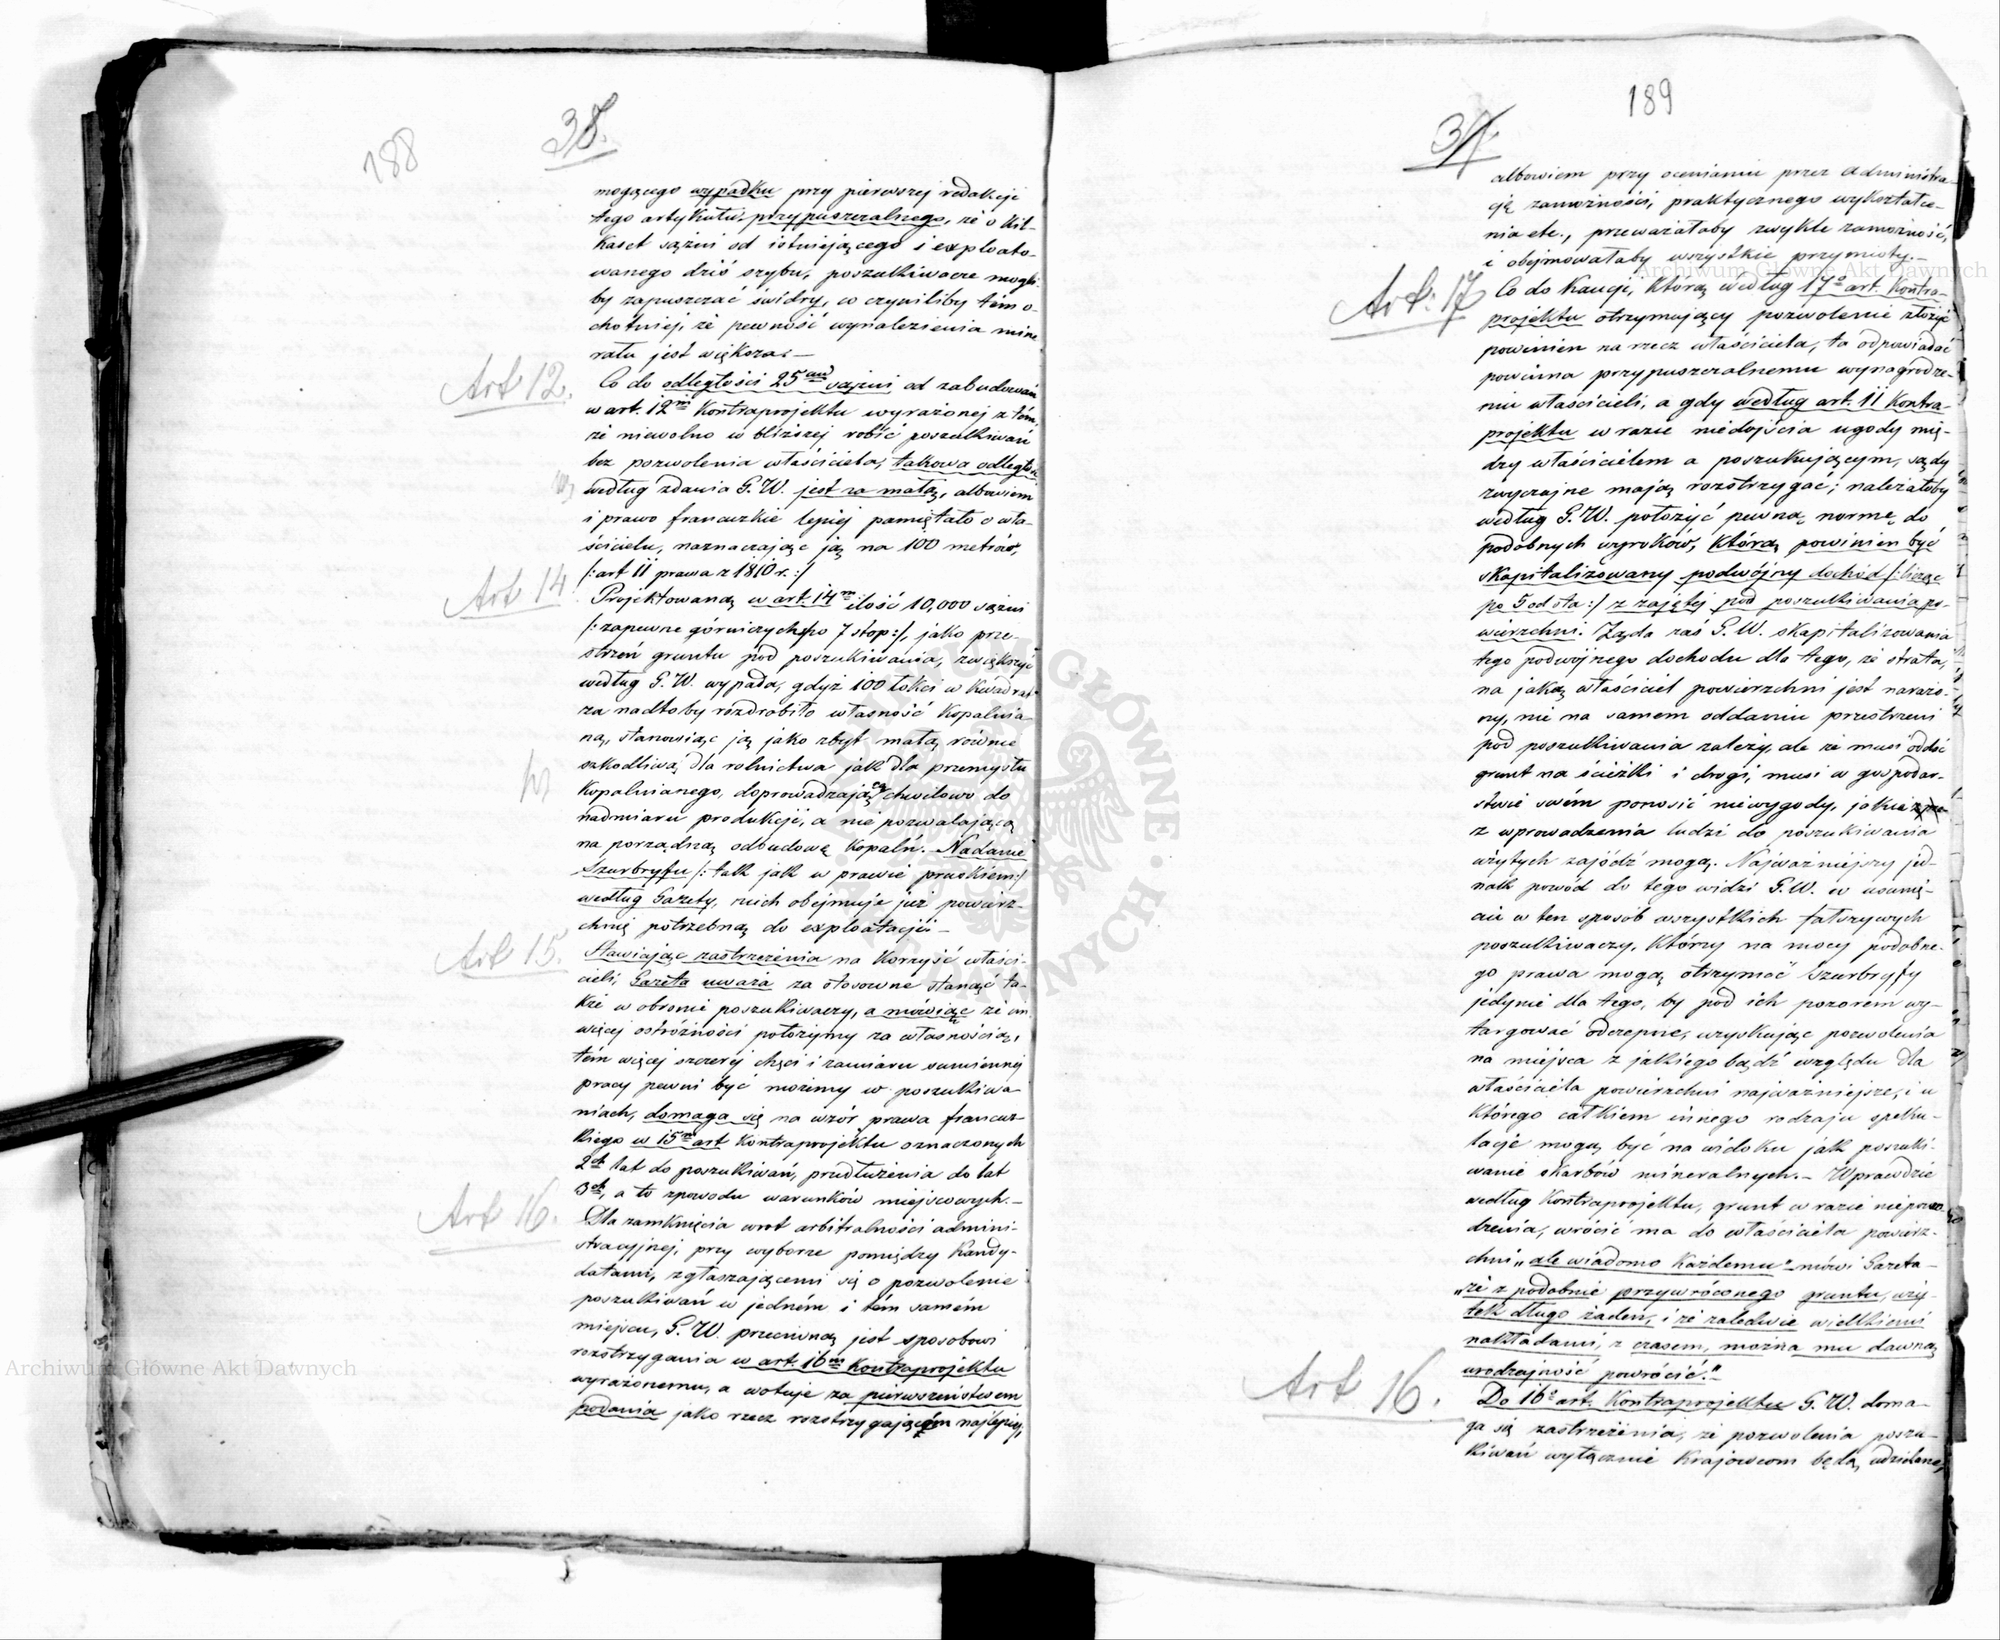 188
38.
mogącego wypadku przy pierwszej redakcji
tego artykułu, przypuszczalnego, że o kil-
kaset sążni od istniejącego i exploato-
wanego dziś szybu, poszukiwacze mogli-
by zapuszczać świdry, co czyniliby tém o-
chotniej, że pewność wynalezienia mine
rału jest większa. —
Art 12.
Co do odległości 25ciu sążni od zabudowań
w art. 12m Kontraprojektu wyrażonej z tém,
że niewolno w bliższej robić poszukiwań
bez pozwolenia właściciela, takowa odległość
według zdania G. W. jest za małą, albowiem
i prawo francuzkie lepiej pamiętało o wła-
ścicielu, naznaczając ją na 100 metrów,
/: art 11 prawa z 1810 r. :/
Art 14
Projektowaną w art. 14m ilość 10,000 sążni
/: zapewne górniczych po 7 stop :/, jako prze-
strzeń gruntu pod poszukiwania, zwiększyć
według G. W. wypada, gdyż 100 łokci w kwadrat
za nadtoby rozdrobiło własność kopalnia
ną, stanowiąc ją jako zbyt małą równie
szkodliwą dla rolnictwa jak dla przemysłu
kopalnianego, doprowadzającą chwilowo do
nadmiaru produkcji, a nie pozwalającą
na porządną odbudowę kopalń. Nadanie
Szurbryfu /: tak jak w prawie pruskiem :/
według Gazety, niech obejmuje już powierz-
chnię potrzebną do exploatacji —
Art 15.
Stawiając zastrzeżenia na korzyść właści-
cieli, Gazeta uważa za stosowne stanąć ta-
kże w obronie poszukiwaczy, a mówiąc że im
więcej ostróżności położymy za własnością,
tém więcej szczerej chęci i zamiaru sumiennej
pracy pewni być możemy w poszukiwa
niach, domaga się na wzór prawa francuz-
kiego w 15m art Kontraprojektu oznaczonych
2ch lat do poszukiwań, przedłużenia do lat
3ch, a to z powodu warunków miejscowych. —
Art 16.
Dla zamknięcia wrot arbitralności admini-
stracyjnej, przy wyborze pomiędzy Kandy-
datami, zgłaszającemi się o pozwolenie
poszukiwań w jedném i tém samém
miejscu, G. W. przeciwną jest sposobowi
rozstrzygania w art. 16m Kontraprojektu
wyrażonemu, a wotuje za pierwszeństwem
podania jako rzecz rozstrzygającém najlepiej,
189
albowiem przy ocenianiu przez Administra-
cję zamożności, praktycznego wykształce-
nia etc., przeważałaby zwykle zamożność,
i obejmowałaby wszystkie przymioty. —
Art. 17
Co do Kaucji, którą według 17o art. Kontra-
projektu otrzymujący pozwolenie złożyć
powinien na rzecz właściciela, ta odpowiadać
powinna przypuszczalnemu wynagrodze-
niu właścicieli, a gdy według art. 11 Kontra-
projektu w razie niedojścia ugody mię-
dzy właścicielem a poszukującym, sądy
zwyczajne mają rozstrzygać; należałoby
według G. W. położyć pewną normę do
podobnych wyroków, którą powinien być
skapitalizowany podwójny dochód /: licząc
po 5 od sta :/ z zajętej pod poszukiwania po-
wierzchni. Żąda zaś G. W. skapitalizowania
tego podwójnego dochodu dla tego, że strata,
na jaką właściciel powierzchni jest narażo-
ny, nie na samem oddaniu przestrzeni
pod poszukiwania zależy, ale że musi oddać
grunt na ścieżki i drogi, musi w gospodar-
stwie swém ponosić niewygody, jakie
z wprowadzenia ludzi do poszukiwania
użytych zajść mogą. Najważniejszy jed-
nak powód do tego widzi G. W. w usunię-
ciu w ten sposób wszystkich fałszywych
poszukiwaczy, którzy na mocy podobne-
go prawa mogą otrzymać Szurbryfy
jedynie dla tego, by pod ich pozorem wy-
targować odczepne, uzyskując pozwolenia
na miejsca z jakiego bądź względu dla
właściciela powierzchni najważniejsze, i u
którego całkiem innego rodzaju speku-
lacje mogą być na widoku jak poszuki-
wanie skarbów mineralnych. — Wprawdzie
według Kontraprojektu, grunt w razie niepowo
dzenia, wrócić ma do właściciela powierz-
chni „ale wiadomo każdemu" mówi Gazeta
„że z podobnie przywróconego gruntu, uży-
tek długo żaden, i że zaledwie wielkiemi
nakładami, z czasem, można mu dawną
urodzajność powrócić."
Art 16.
Do 16o art. Kontraprojektu G. W. doma-
ga się zastrzeżenia, że pozwolenia poszu-
kiwań wyłącznie Krajowcom będą udzielane,
Archiwum Główne Akt Dawnych
Archiwum Główne Akt Dawnych